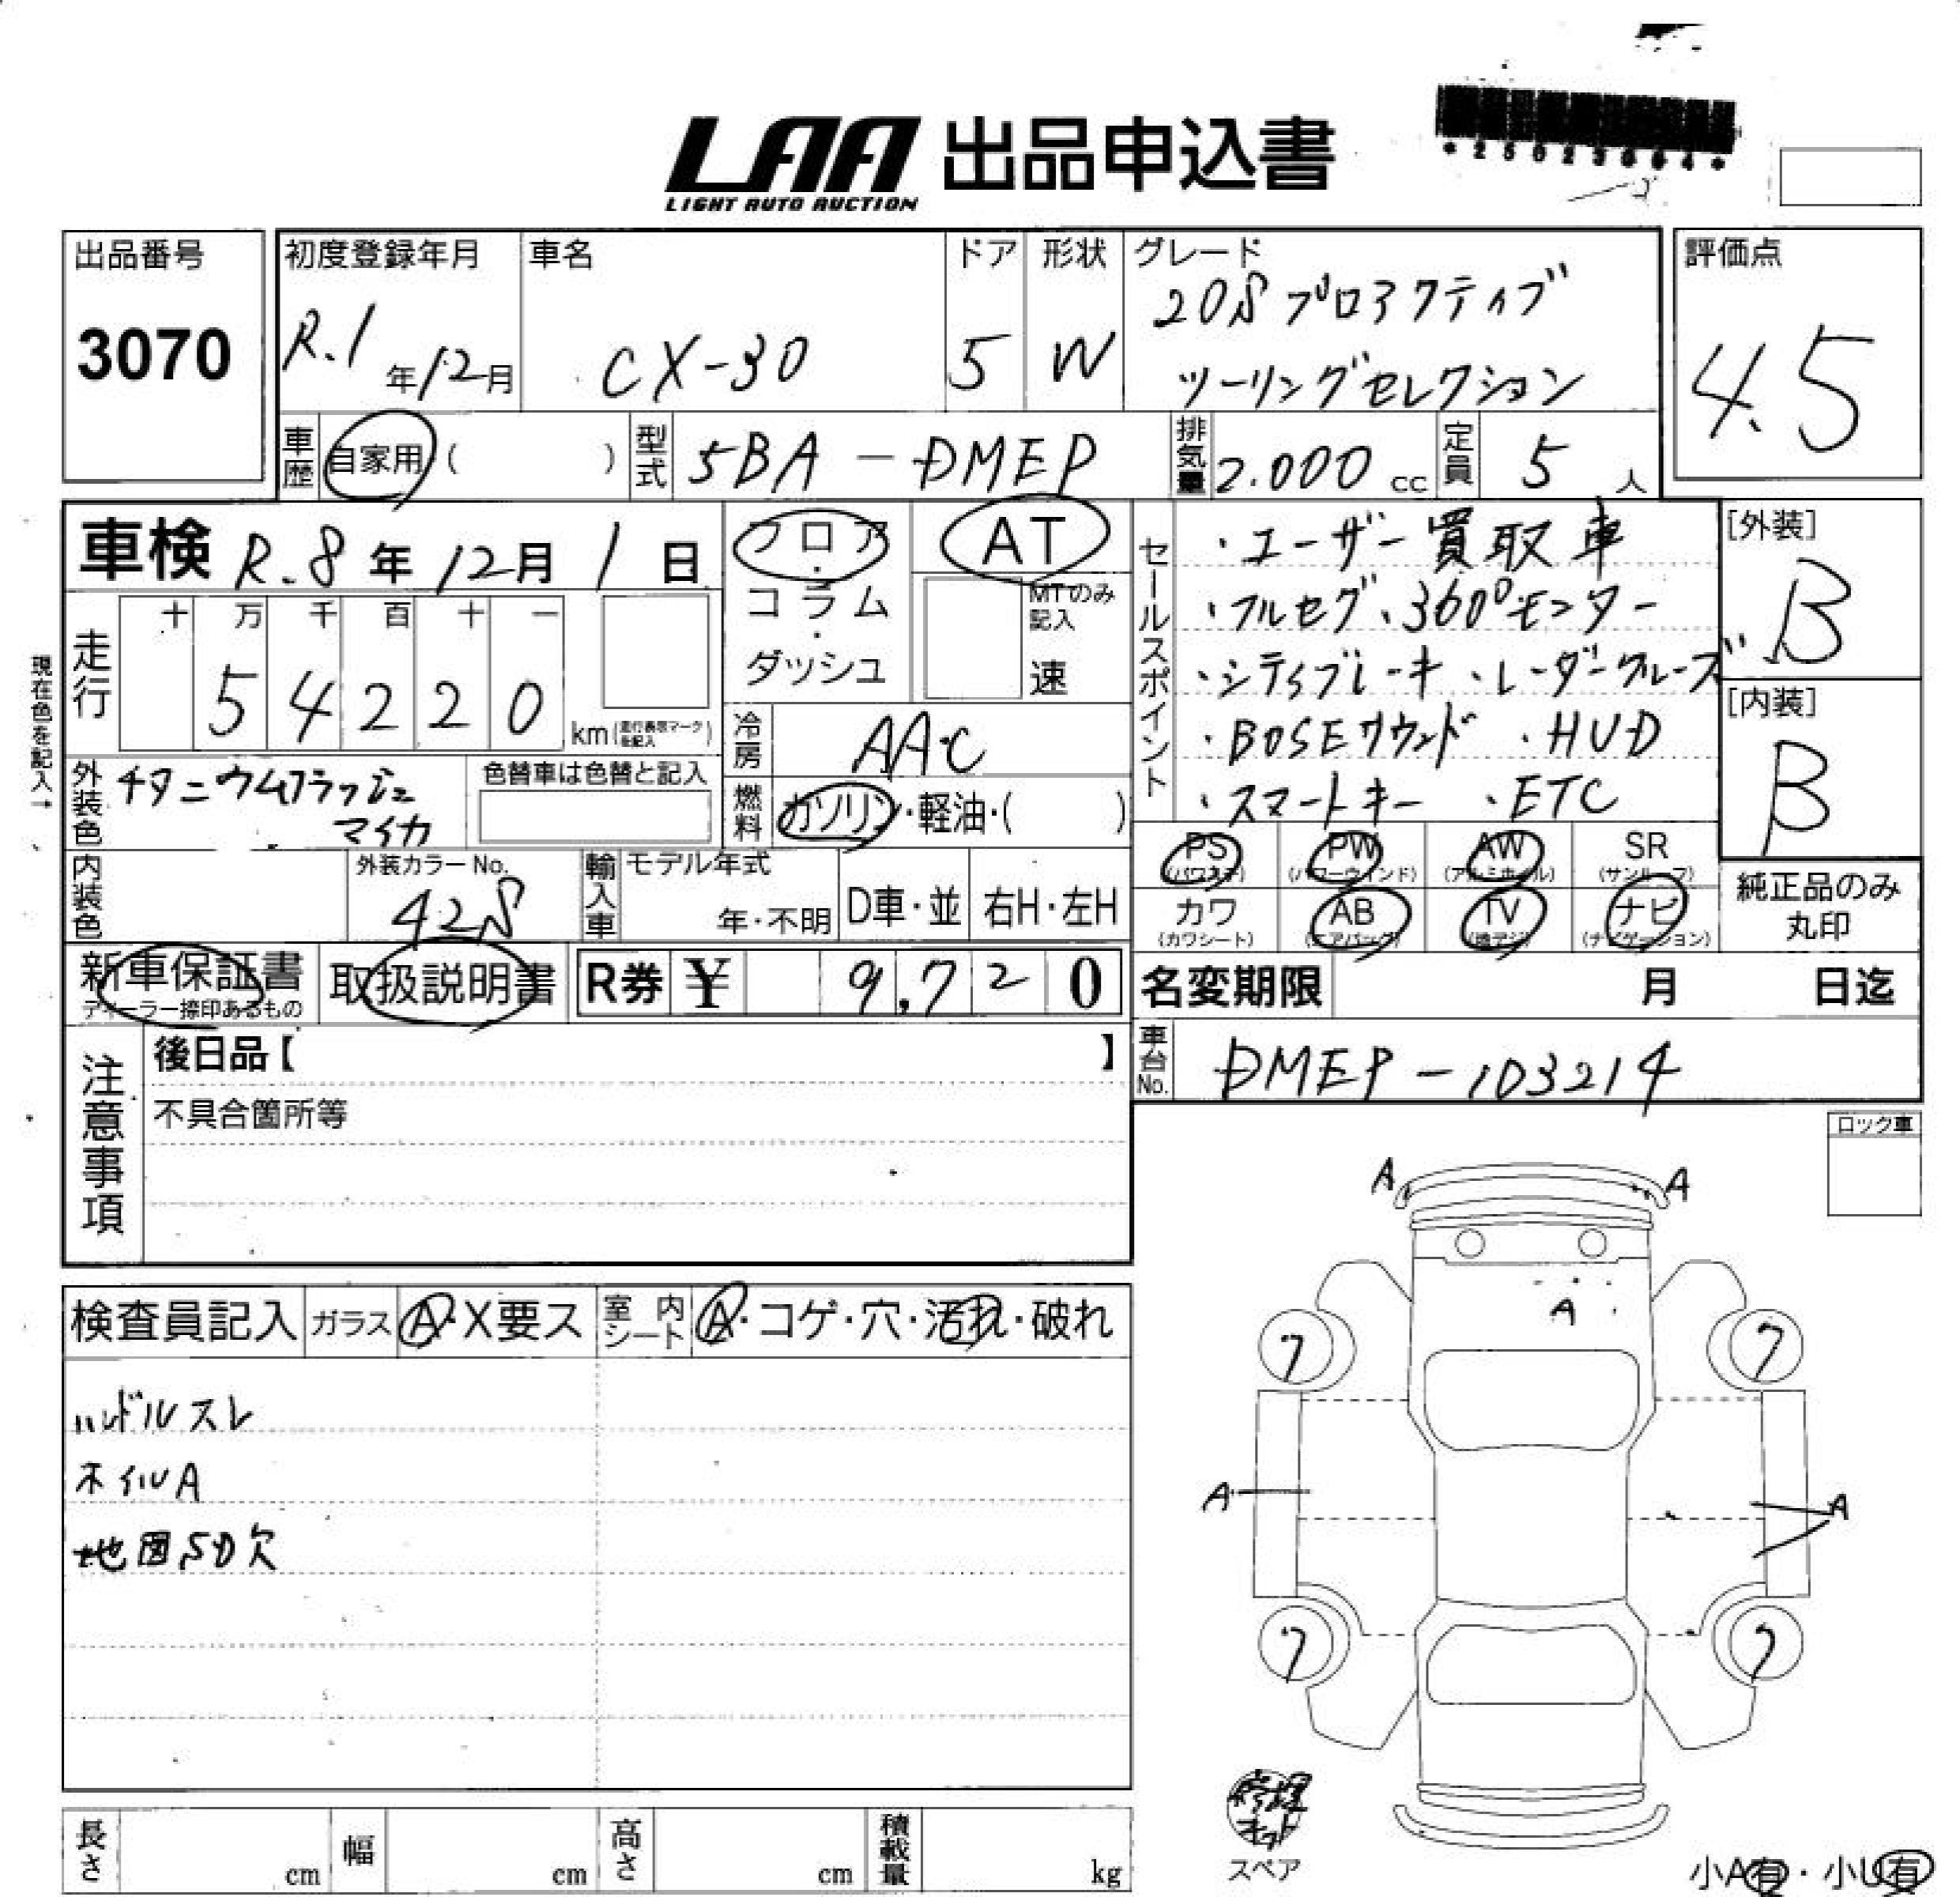 LAA 出品申込書
LIGHT AUTO AUCTION
出品番号
3070
初度登録年月
R.1年12月
車名
CX-30
ドア
5
形状
W
グレード
20Sプロアクティブ
ツーリングセレクション
評価点
4.5
車歴 自家用 ( )
型式 5BA-DMEP
排気量 2.000 cc
定員 5 人
車検 R.8年12月1日
フロア・コラム・ダッシュ
AT
MTのみ記入
速
セールスポイント
・ユーザー買取車
・フルセグ、360°モニター
・シティブレーキ、レーダークルーズ
・BOSEサウンド ・HUD
・スマートキー ・ETC
[外装]
B
[内装]
B
現在色を記入→
走行
十 万 千 百 十 一
5 4 2 2 0
km(走行表示マークを記入)
冷房 AAC
外装色 チタニウムフラッシュ
マイカ
色替車は色替と記入
燃料 ガソリン・軽油・( )
内装色
外装カラーNo.
42S
輸入車
モデル年式
年・不明
D車・並
右H・左H
PS (パワステ)
PW (パワーウインド)
AW (アルミホイル)
SR (サンルーフ)
カワ (カワシート)
AB (エアバッグ)
TV (地デジ)
ナビ (ナビゲーション)
純正品のみ
丸印
新車保証書
ディーラー捺印あるもの
取扱説明書
R券 ¥ 9,720
名変期限 月 日迄
注意事項
後日品【 】
不具合箇所等
車台No. DMEP-103214
ロック車
検査員記入
ガラス A・X要ス
室内シート A・コゲ・穴・汚れ・破れ
ハンドルスレ
ホイルA
地図SD欠
A A
A
7 7
A A
7 7
修理キット
スペア
長さ cm
幅 cm
高さ cm
積載量 kg
小A有・小U有